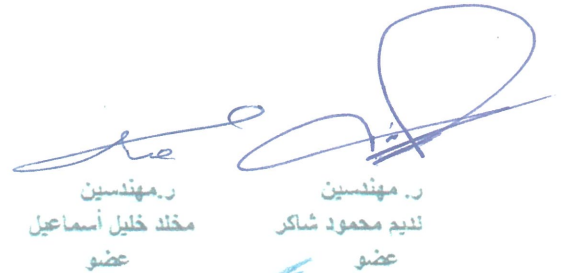 ر. مهندسين
نديم محمود شاكر
عضو
ر.مهندسين
مخلد خليل أسماعيل
عضو